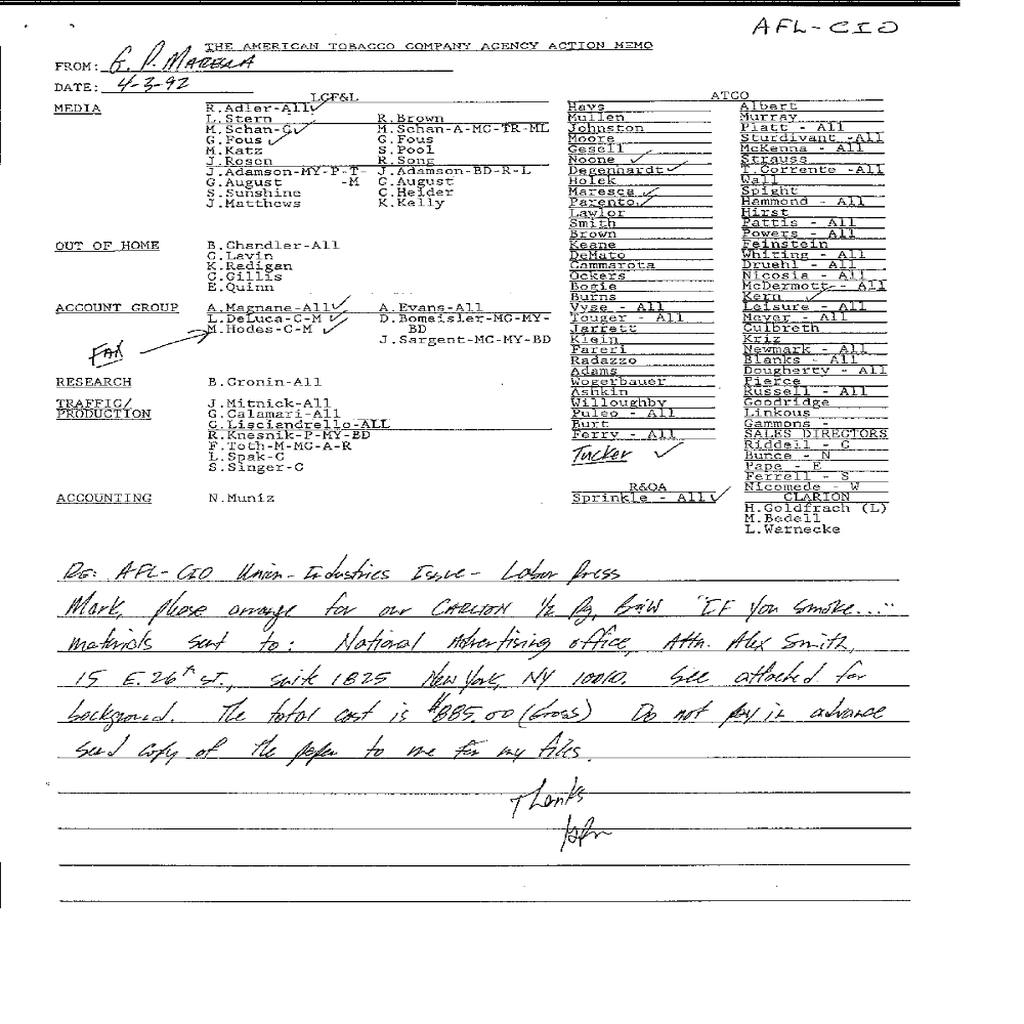 AFL-CIO
THE AMERICAN TOBACCO COMPANY AGENCY ACTION MEMO
FROM: G. P. Maresca
DATE: 4-3-92
LGF&L ATCO
MEDIA
R.Adler-All
L.Stern R.Brown
M.Schan-G M.Schan-A-MC-TR-ML
G.Fous G.Fous
M.Katz S.Pool
J.Rosen R.Song
J.Adamson-MY-P-T- J.Adamson-BD-R-L
G.August -M C.August
S.Sunshine C.Heider
J.Matthews K.Kelly
OUT OF HOME B.Chandler-All
C.Lavin
K.Redigan
C.Gillis
E.Quinn
ACCOUNT GROUP A.Magnane-All A.Evans-All
L.DeLuca-C-M D.Bomeisler-MC-MY-
M.Hodes-C-M BD
J.Sargent-MC-MY-BD
FAX
RESEARCH B.Cronin-All
TRAFFIC/ J.Mitnick-All
PRODUCTION G.Calamari-All
C.Lisciendrello-ALL
R.Knesnik-P-MY-BD
F.Toth-M-MC-A-R
L.Spak-C
S.Singer-C
ACCOUNTING N.Muniz
Hays
Mullen
Johnston
Moore
Gesell
Noone
Degenhardt
Holek
Maresca
Parento
Lawlor
Smith
Brown
Keane
DeMato
Cammarota
Ockers
Bogie
Burns
Vyse - All
Touger - All
Jarrett
Klein
Fareri
Radazzo
Adams
Wogerbauer
Ashkin
Willoughby
Puleo - All
Burt
Ferry - All
Tucker
R&OA
Sprinkle - All
Albert
Murray
Platt - All
Sturdivant -All
McKenna - All
Strauss
T.Corrente -All
Wall
Spight
Hammond - All
Hirst
Pattis - All
Powers - All
Feinstein
Whiting - All
Druehl - All
Nicosia - All
McDermott - All
Kern
Leisure - All
Meyer - All
Culbreth
Kriz
Newmark - All
Blanks - All
Dougherty - All
Pierce
Russell - All
Goodridge
Linkous
Gammons -
SALES DIRECTORS
Riddell - C
Bunce - N
Pape - E
Ferrell - S
Nicomede - W
CLARION
H.Goldfrach (L)
M.Bedell
L.Warnecke
RE: AFL-CIO Union-Industries Issue - Labor Press
Mark, please arrange for our CARLTON 1/2 Pg, B&W "IF You Smoke...."
materials sent to: National Advertising office, Attn. Alex Smith,
15 E. 26th St., suite 1825 New York, NY 10010. See attached for
background. The total cost is $885.00 (Gross) Do not pay in advance
send copy of the paper to me for my files.
Thanks